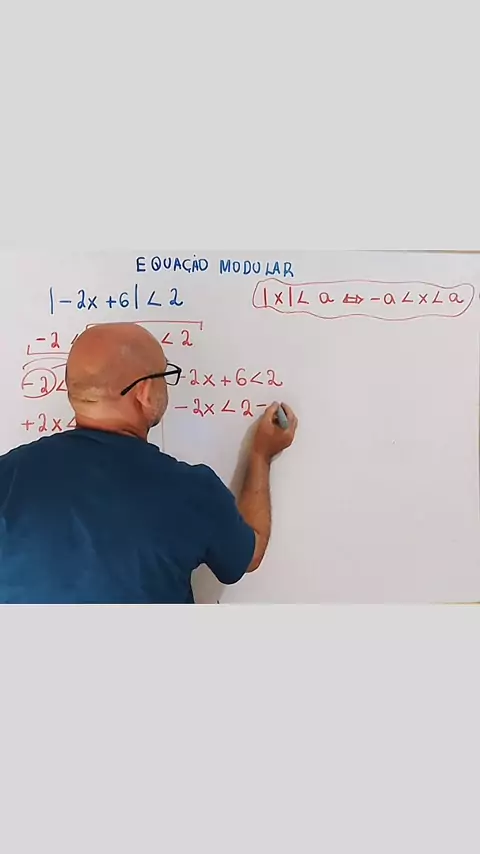 EQUAÇÃO MODULAR
|-2x+6| < 2
|x| < a ⇔ -a < x < a
-2 < < 2
-2 <
-2x+6<2
+2x<
-2x<2-